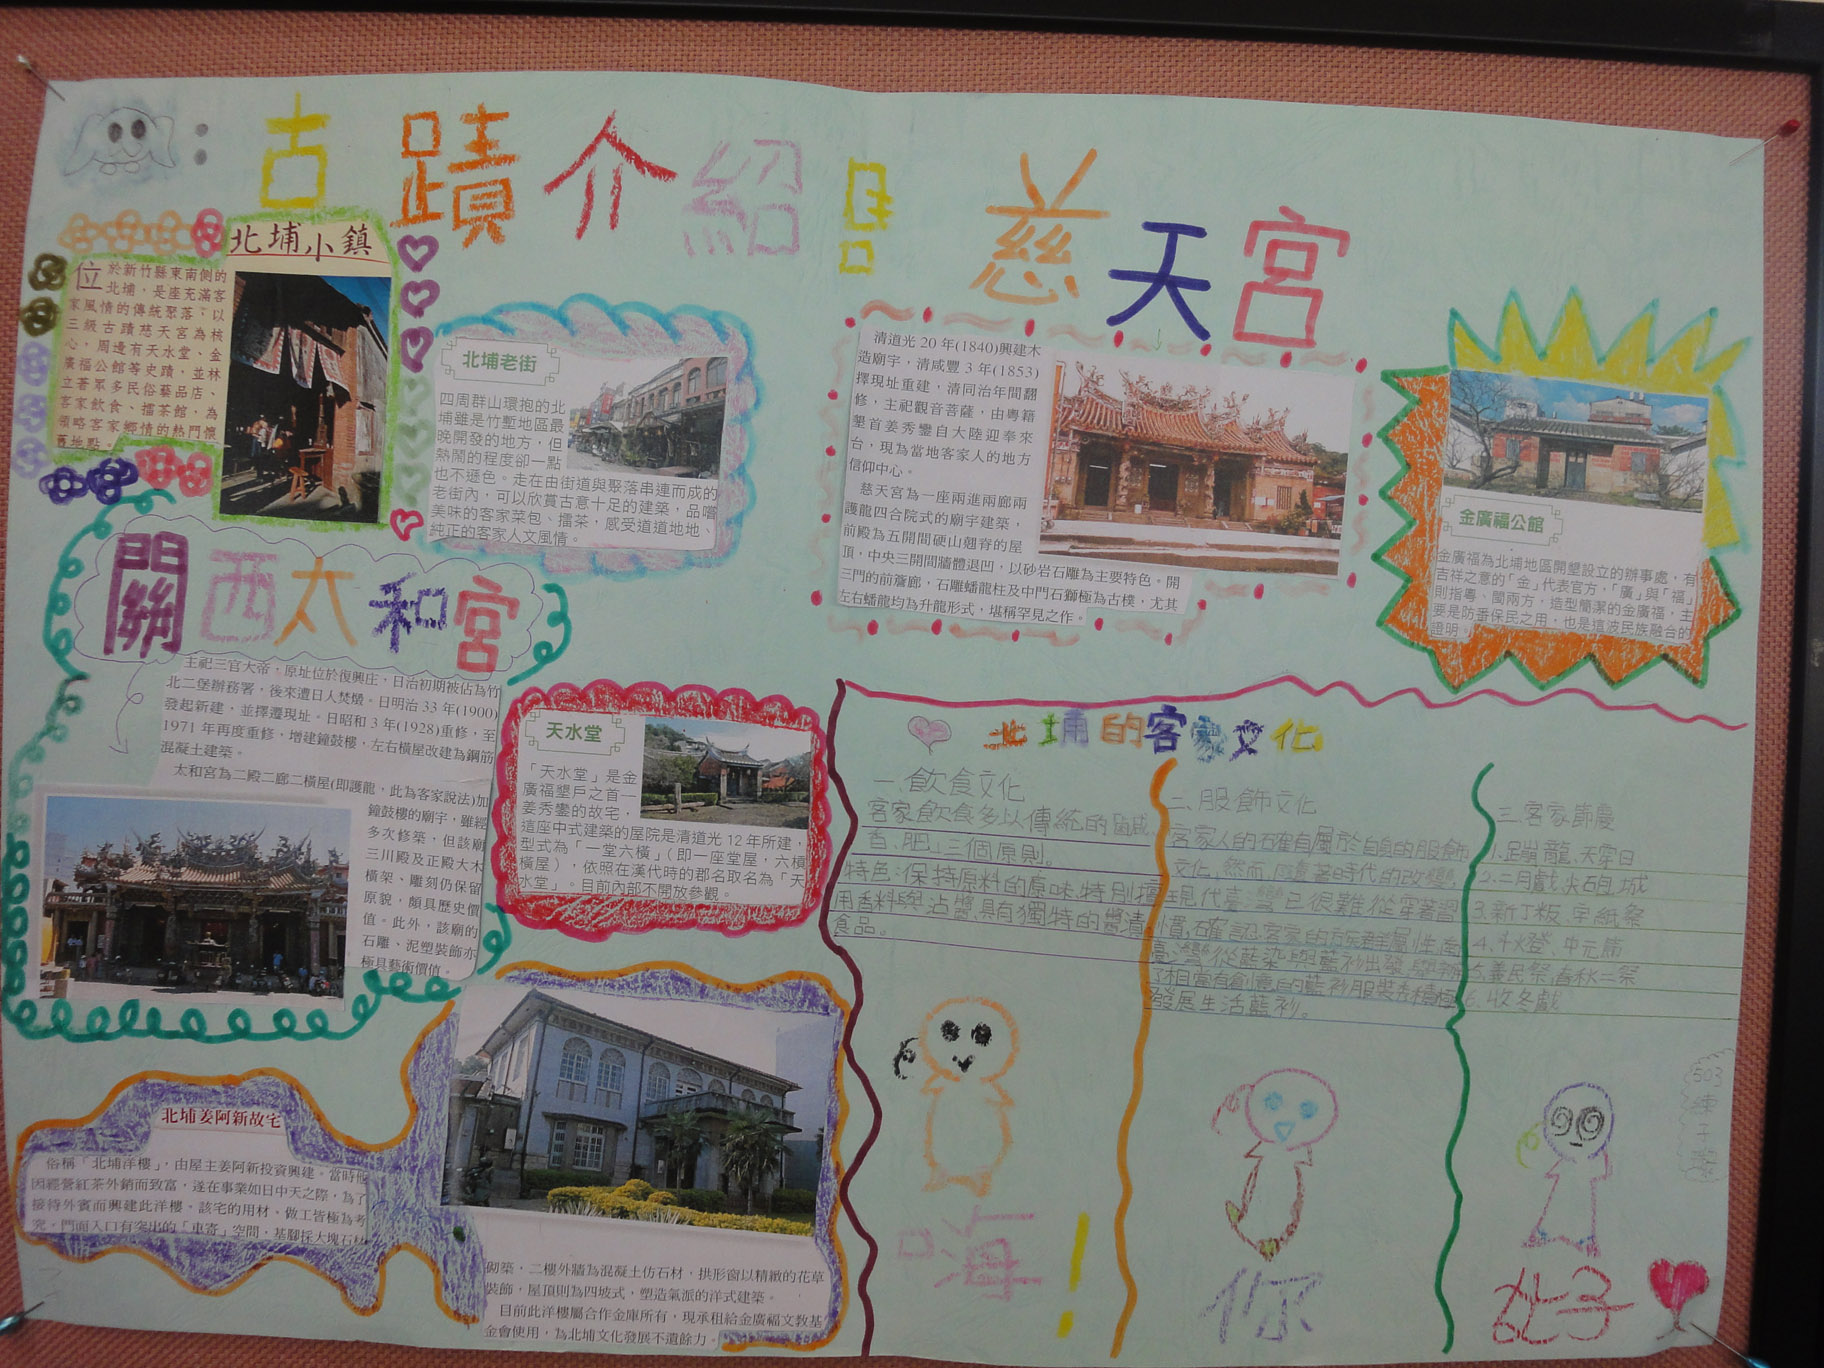 古蹟介紹
慈天宮
北埔小鎮
位於新竹縣東南側的
北埔，是座充滿客
家風情的傳統聚落，以
三級古蹟慈天宮為核
心，周邊有天水堂、金
廣福公館等史蹟，並林
立著眾多民俗藝品店、
客家飲食、擂茶館，為
領略客家鄉情的熱門懷
舊地點。
北埔老街
四周群山環抱的北
埔雖是竹塹地區最
晚開發的地方，但
熱鬧的程度卻一點
也不遜色。走在由街道與聚落串連而成的
老街內，可以欣賞古意十足的建築，品嚐
美味的客家菜包、擂茶，感受道道地地、
純正的客家人文風情。
清道光 20 年(1840)興建木
造廟宇，清咸豐 3 年(1853)
擇現址重建，清同治年間翻
修，主祀觀音菩薩，由粵籍
墾首姜秀鑾自大陸迎奉來
台，現為當地客家人的地方
信仰中心。
慈天宮為一座兩進兩廊兩
護龍四合院式的廟宇建築，
前殿為五開間硬山翹脊的屋
頂，中央三開間牆體退凹，以砂岩石雕為主要特色。開
三門的前簷廊，石雕蟠龍柱及中門石獅極為古樸，尤其
左右蟠龍均為升龍形式，堪稱罕見之作。
金廣福公館
金廣福為北埔地區開墾設立的辦事處，有
吉祥之意的「金」代表官方，「廣」與「福」
則指粵、閩兩方，造型簡潔的金廣福，主
要是防番保民之用，也是這波民族融合的
證明。
關西太和宮
主祀三官大帝，原址位於復興庄，日治初期被佔為竹
北二堡辦務署，後來遭日人焚燬。日明治 33 年(1900)
發起新建，並擇遷現址。日昭和 3 年(1928)重修，至
1971 年再度重修，增建鐘鼓樓，左右橫屋改建為鋼筋
混凝土建築。
太和宮為二殿二廊二橫屋(即護龍，此為客家說法)加
鐘鼓樓的廟宇，雖經
多次修築，但該廟
三川殿及正殿大木
橫架、雕刻仍保留
原貌，頗具歷史價
值。此外，該廟的
石雕、泥塑裝飾亦
極具藝術價值。
天水堂
「天水堂」是金
廣福墾戶之首—
姜秀鑾的故宅，
這座中式建築的屋院是清道光 12 年所建，
型式為「一堂六橫」（即一座堂屋，六槓
橫屋），依照在漢代時的郡名取名為「天
水堂」。目前內部不開放參觀。
北埔姜阿新故宅
俗稱「北埔洋樓」，由屋主姜阿新投資興建。當時他
因經營紅茶外銷而致富，遂在事業如日中天之際，為了
接待外賓而興建此洋樓。該宅的用材、做工皆極為考
究，門面入口有突出的「車寄」空間，基腳採大塊石材
砌築，二樓外牆為混凝土仿石材，拱形窗以精緻的花草
裝飾，屋頂則為四坡式，塑造氣派的洋式建築。
目前此洋樓屬合作金庫所有，現承租給金廣福文教基
金會使用，為北埔文化發展不遺餘力。
北埔的客家文化
一.飲食文化
客家飲食多以傳統的鹹、
香、肥」三個原則。
特色:保持原料的原味，特別擅
用香料與沾醬，具有獨特的醬漬
食品。
二.服飾文化
客家人的確有屬於自身的服飾
文化，然而，隨著時代的改變，
現代臺灣已很難從穿著習
慣確認客家的族群屬性，
臺灣從藍染與藍衫出發，
了相當有創意的藍衫服裝秀積極
發展生活藍衫。
三.客家節慶
1.䟴龍、天穿日
2.二月戲、火砲城
3.新丁粄、字紙祭
4.斗燈、中元節
5.義民祭、春秋二祭
6.收冬戲
503
嗨！
你
好